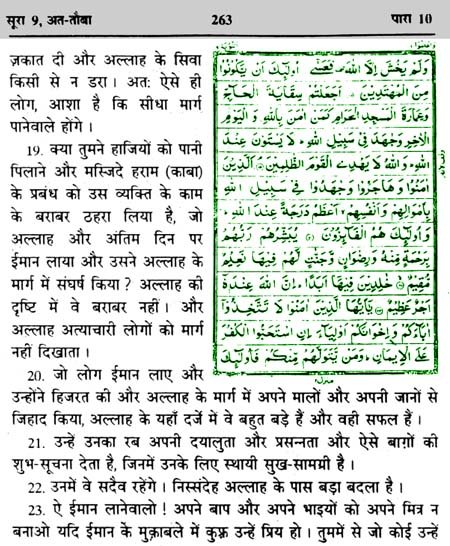 सूरा 9, अत-तौबा 263 पारा 10
ज़कात दी और अल्लाह के सिवा
किसी से न डरा। अतः ऐसे ही
लोग, आशा है कि सीधा मार्ग
पानेवाले होंगे।
19. क्या तुमने हाजियों को पानी
पिलाने और मस्जिदे हराम (काबा)
के प्रबंध को उस व्यक्ति के काम
के बराबर ठहरा लिया है, जो
अल्लाह और अंतिम दिन पर
ईमान लाया और उसने अल्लाह के
मार्ग में संघर्ष किया? अल्लाह की
दृष्टि में वे बराबर नहीं। और
अल्लाह अत्याचारी लोगों को मार्ग
नहीं दिखाता।
وَلَمْ يَخْشَ إِلَّا اللهَ فَعَسَى أُولَٰئِكَ أَنْ يَكُونُوا
مِنَ الْمُهْتَدِينَ أَجَعَلْتُمْ سِقَايَةَ الْحَاجِّ
وَعِمَارَةَ الْمَسْجِدِ الْحَرَامِ كَمَنْ آمَنَ بِاللهِ وَالْيَوْمِ
الْآخِرِ وَجَهَدَ فِي سَبِيلِ اللهِ لَا يَسْتَوُونَ عِنْدَ
اللهِ وَاللهُ لَا يَهْدِي الْقَوْمَ الظَّلِمِينَ الَّذِينَ
آمَنُوا وَهَاجَرُوا وَجَهَدُوا فِي سَبِيلِ اللهِ
بِأَمْوَالِهِمْ وَأَنْفُسِهِمْ أَعْظَمُ دَرَجَةً عِنْدَ اللهِ
وَأُولَٰئِكَ هُمُ الْفَائِزُونَ يُبَشِّرُهُمْ رَبُّهُمْ
بِرَحْمَةٍ مِنْهُ وَرِضْوَانٍ وَجَنَّتٍ لَهُمْ فِيهَا نَعِيمٌ
مُقِيمٌ خَلِدِينَ فِيهَا أَبَدًا إِنَّ اللهَ عِنْدَهُ
أَجْرٌ عَظِيمٌ يَأَيُّهَا الَّذِينَ آمَنُوا لَا تَتَّخِذُوا
آبَاءَكُمْ وَإِخْوَانَكُمْ أَوْلِيَاءَ إِنِ اسْتَحَبُّوا الْكُفْرَ
عَلَى الْإِيمَانِ وَمَنْ يَتَوَلَّهُمْ مِنْكُمْ فَأُولَٰئِكَ
منزل
20. जो लोग ईमान लाए और
उन्होंने हिजरत की और अल्लाह के मार्ग में अपने मालों और अपनी जानों से
जिहाद किया, अल्लाह के यहाँ दर्जे में वे बहुत बड़े हैं और वही सफल हैं।
21. उन्हें उनका रब अपनी दयालुता और प्रसन्नता और ऐसे बाग़ों की
शुभ-सूचना देता है, जिनमें उनके लिए स्थायी सुख-सामग्री है।
22. उनमें वे सदैव रहेंगे। निस्संदेह अल्लाह के पास बड़ा बदला है।
23. ऐ ईमान लानेवालो! अपने बाप और अपने भाइयों को अपने मित्र न
बनाओ यदि ईमान के मुक़ाबले में कुफ़्र उन्हें प्रिय हो। तुममें से जो कोई उन्हें